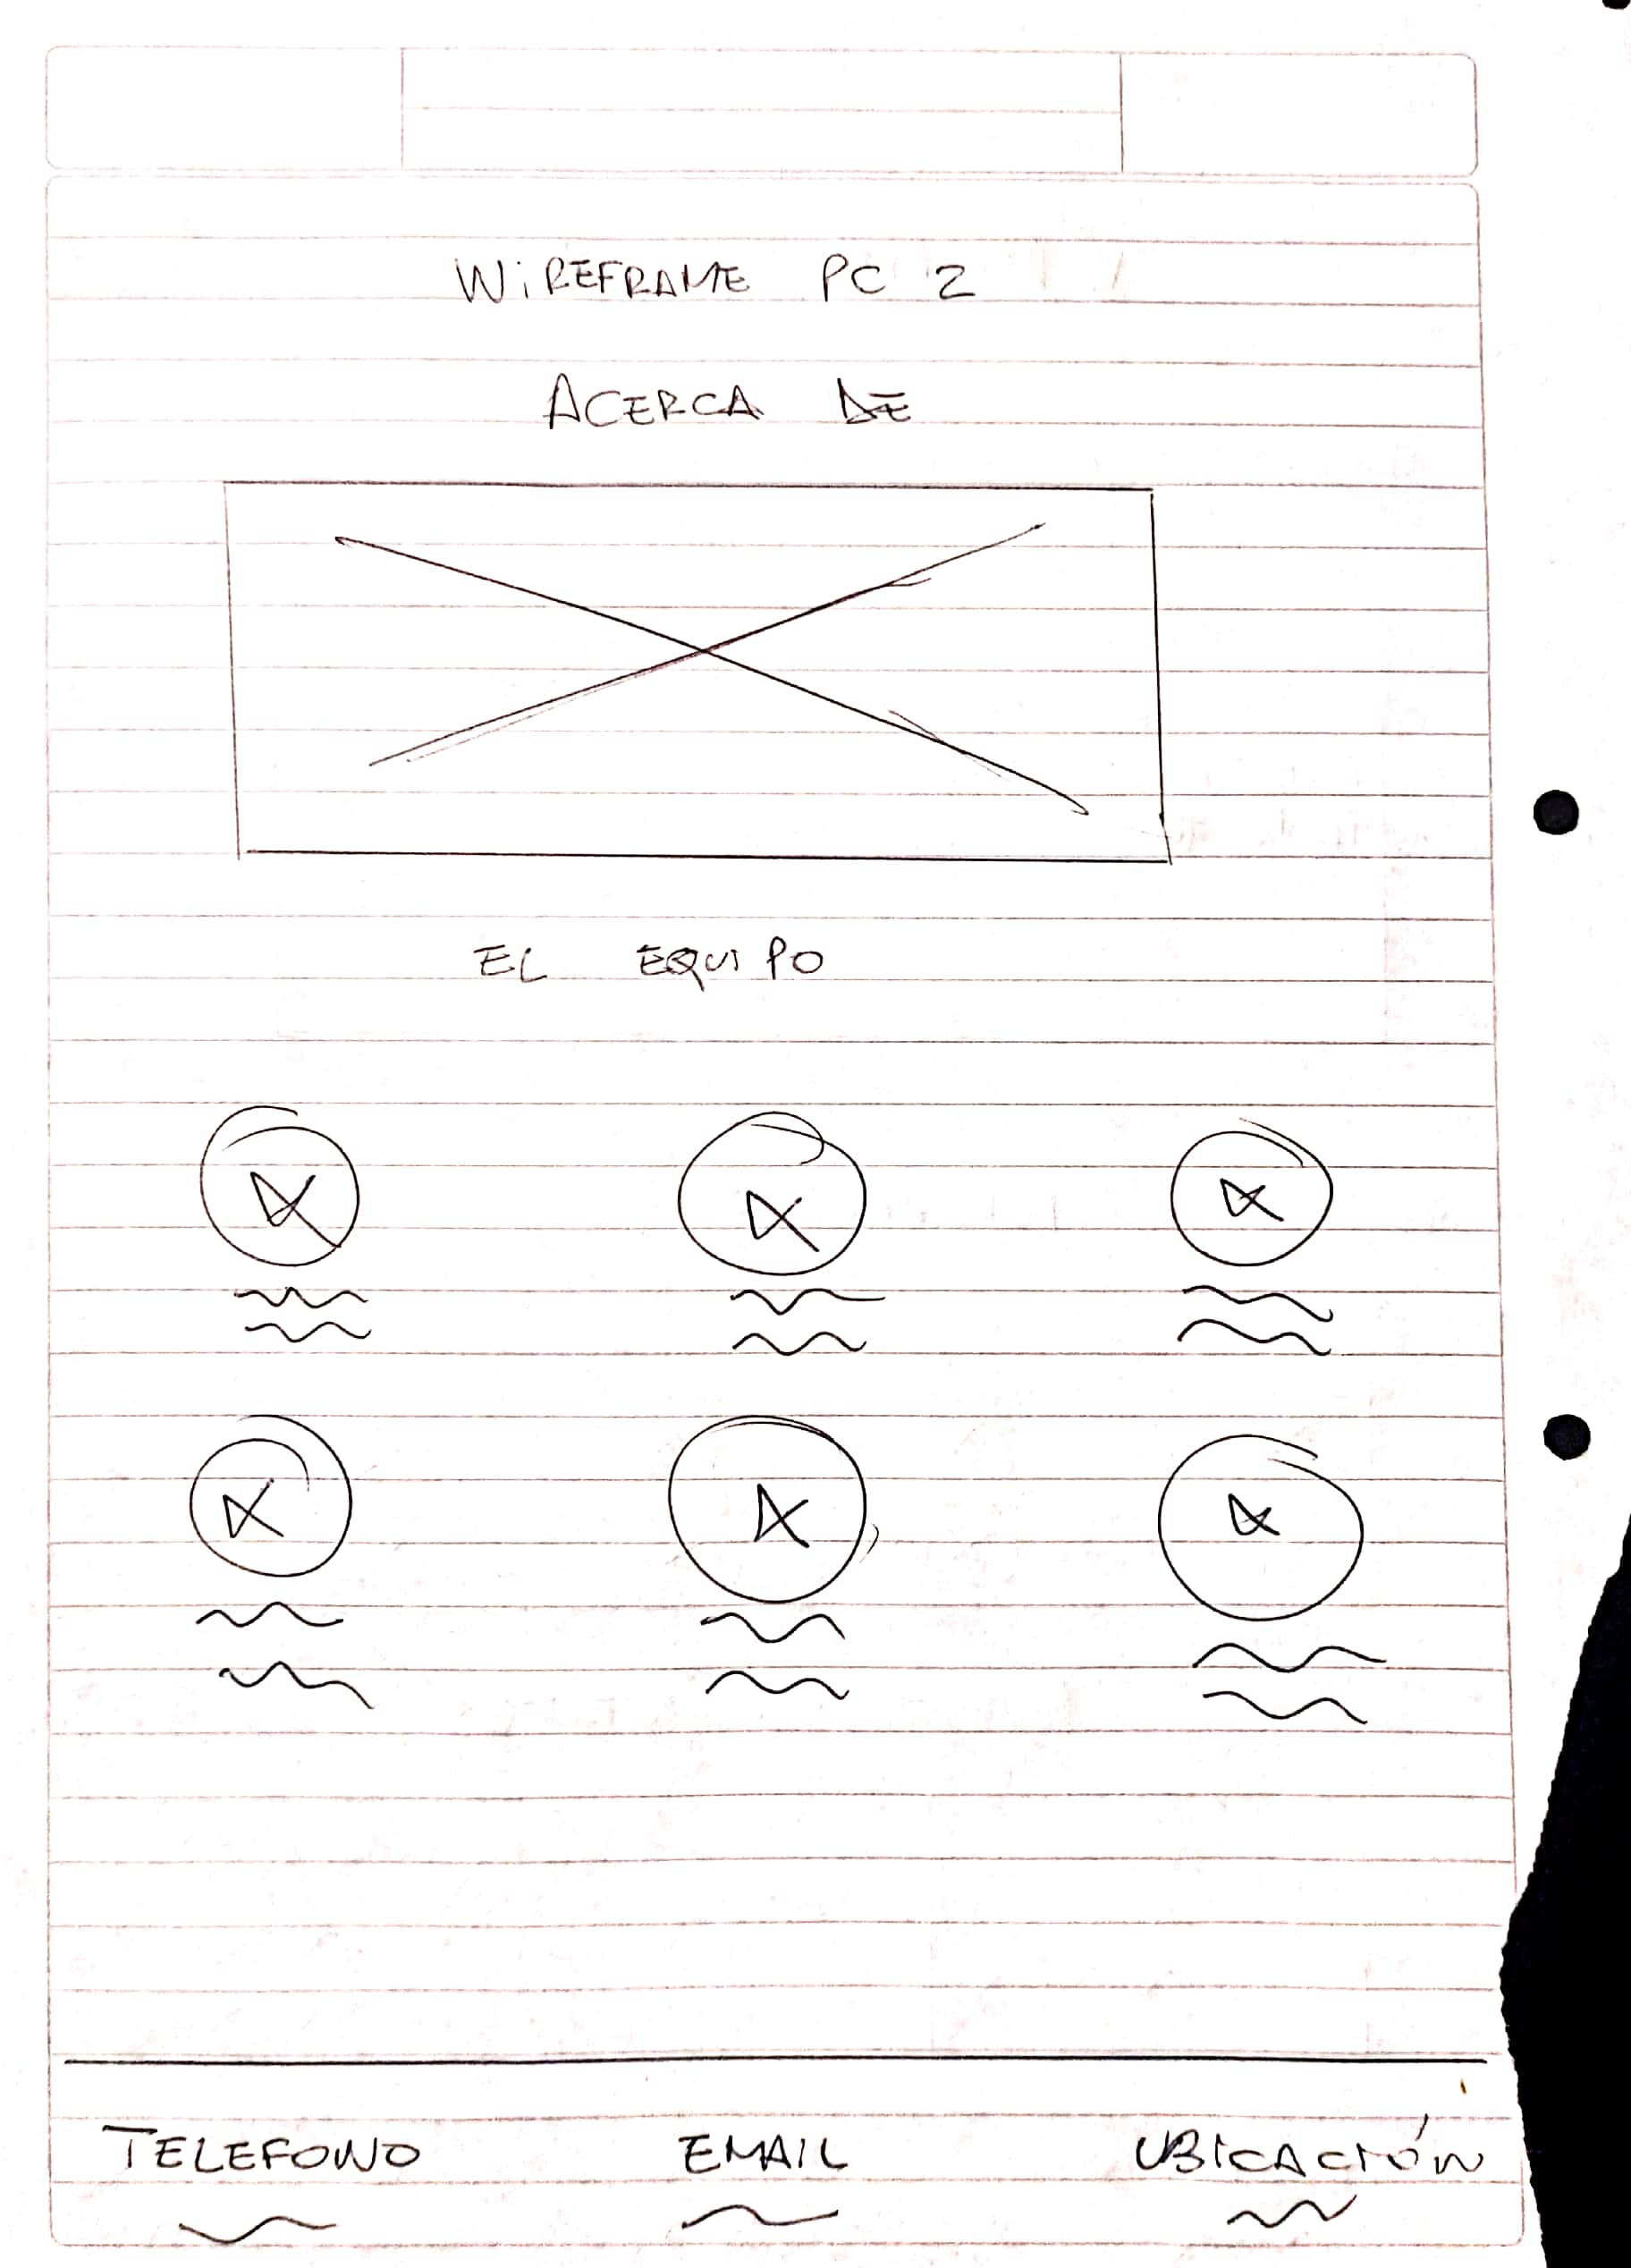 WIREFRAME PC 2
ACERCA DE
EL EQUIPO
TELEFONO EMAIL UBICACIÓN